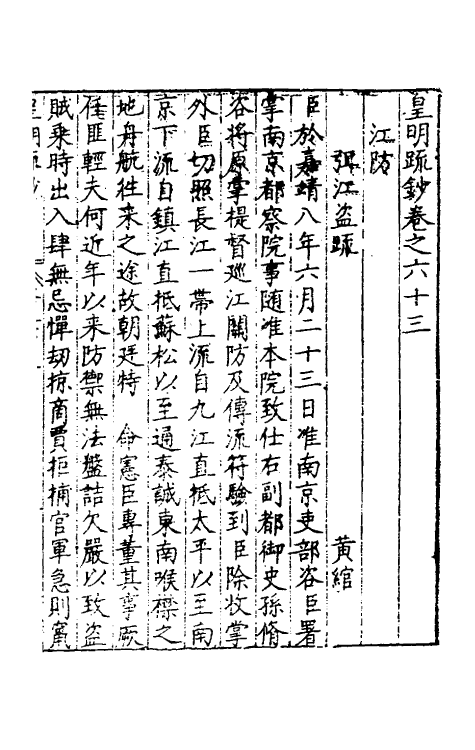 皇明疏鈔卷之六十三
江防
弭江盜疏
黃綰
臣於嘉靖八年六月二十三日准南京吏部咨臣署
掌南京都察院事隨准本院致仕右副都御史孫脩
咨將原掌提督廵江關防及傳流符驗到臣除收掌
外臣切照長江一帶上流自九江直抵太平以至南
京下流自鎮江直抵蘇松以至通泰誠東南喉襟之
地舟航往来之途故朝廷特 命憲臣專董其事厥
任匪輕夫何近年以来防禦無法盤詰欠嚴以致盗
賊乗時出入肆無忌憚刼掠商賈拒捕官軍急則竄